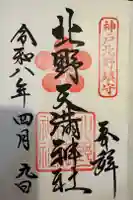 奉拝
神戸北野鎮守
北野天満神社
令和八年四月九日